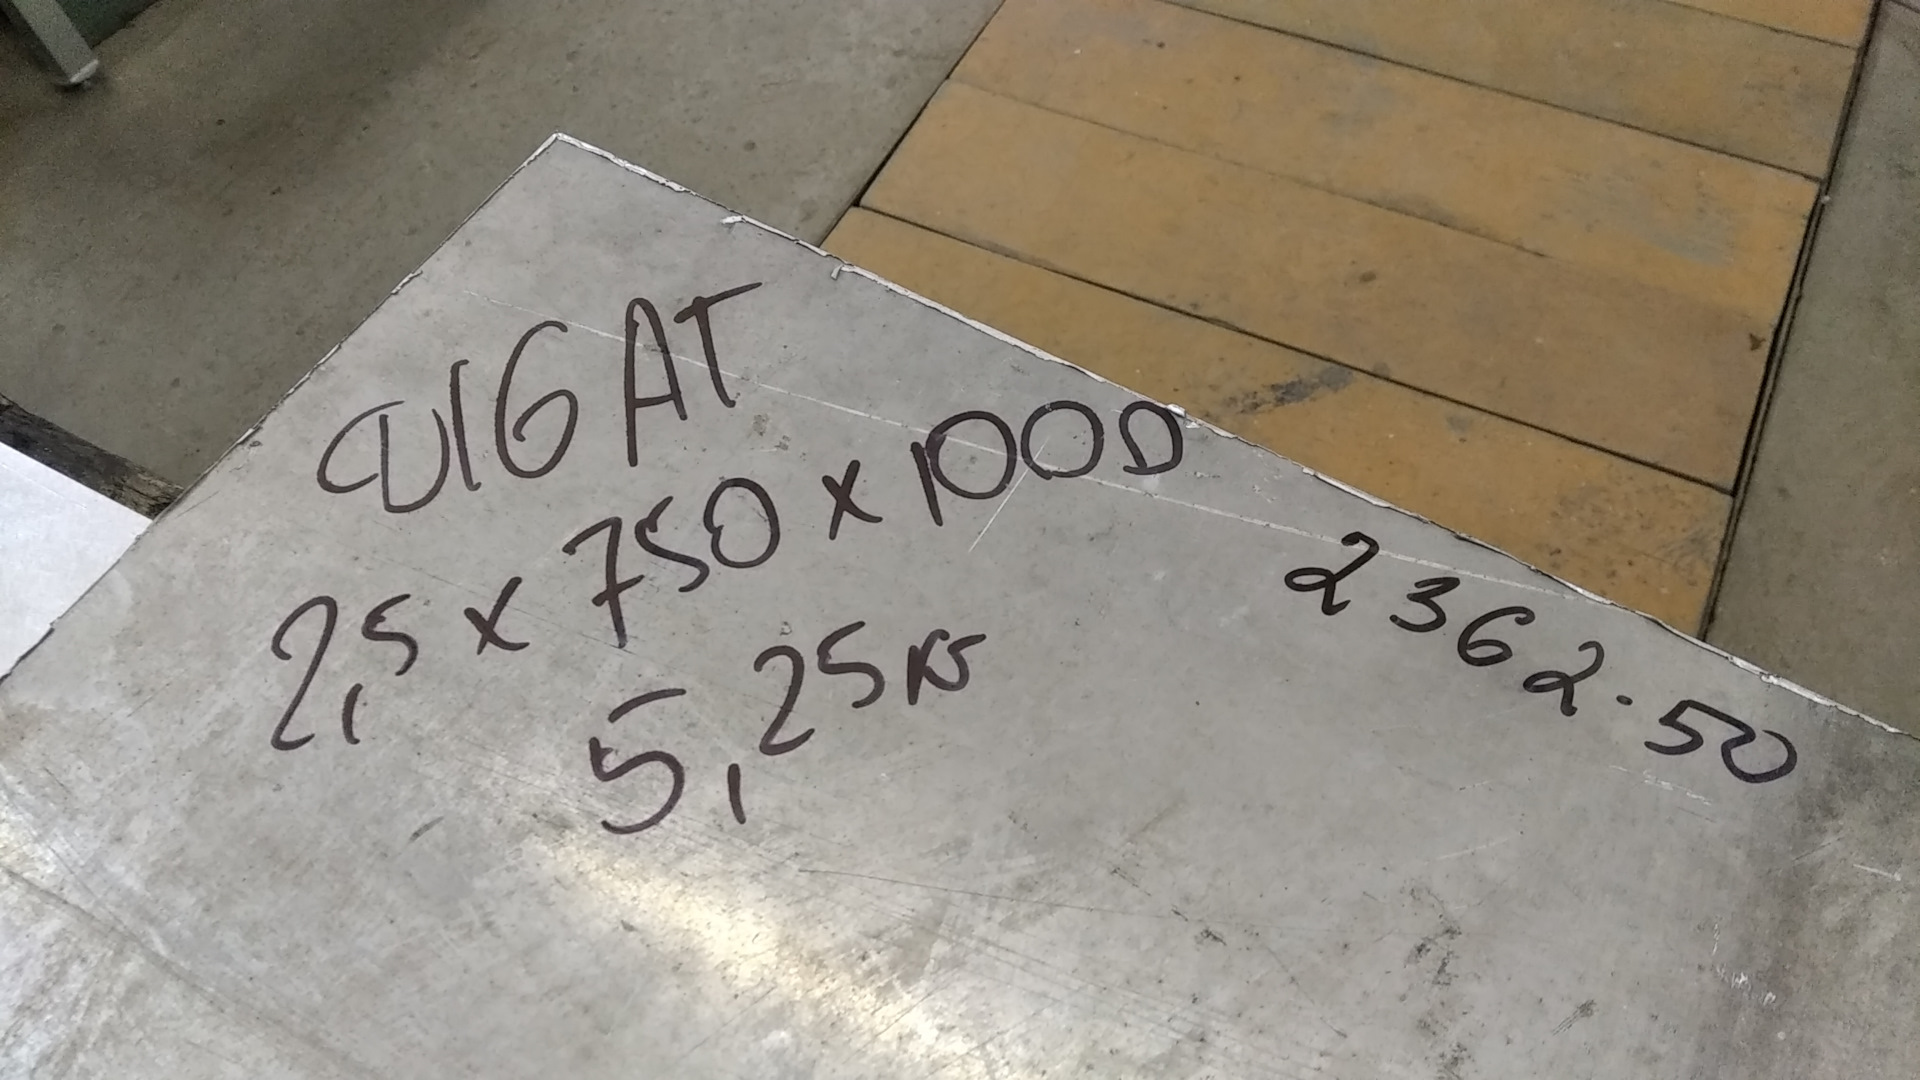 Д16АТ
2,5 x 750 x 1000
5,25 кг
2362.50